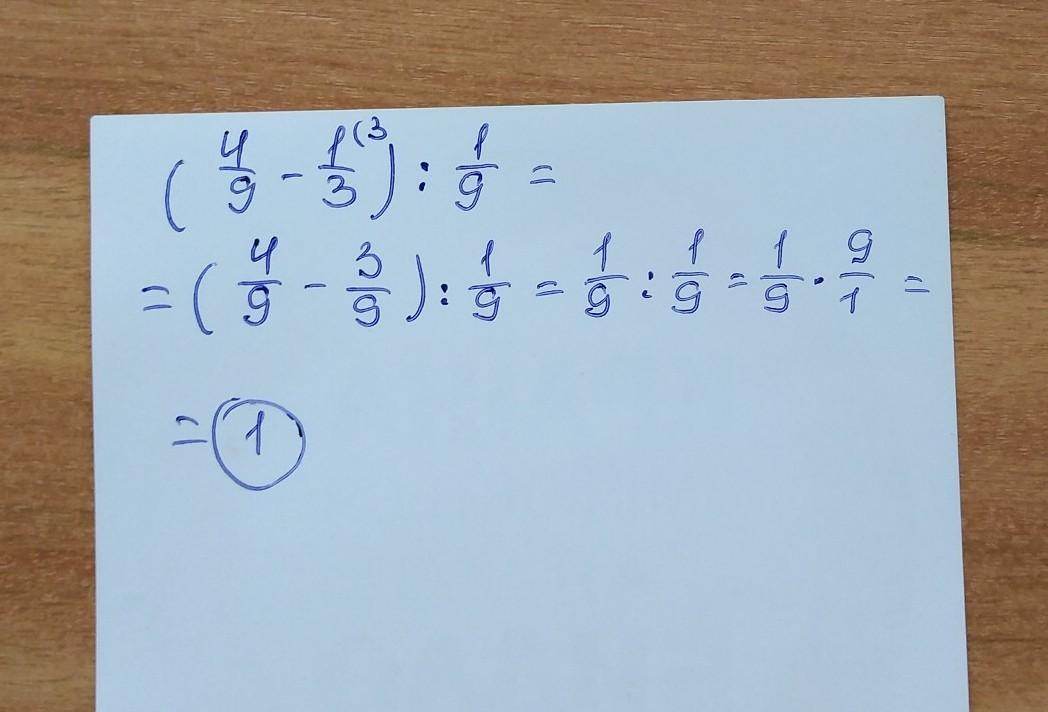 (4/9 - 1/3 (3) : 1/9 =
= (4/9 - 3/9) : 1/9 = 1/9 : 1/9 = 1/9 · 9/1 =
= 1